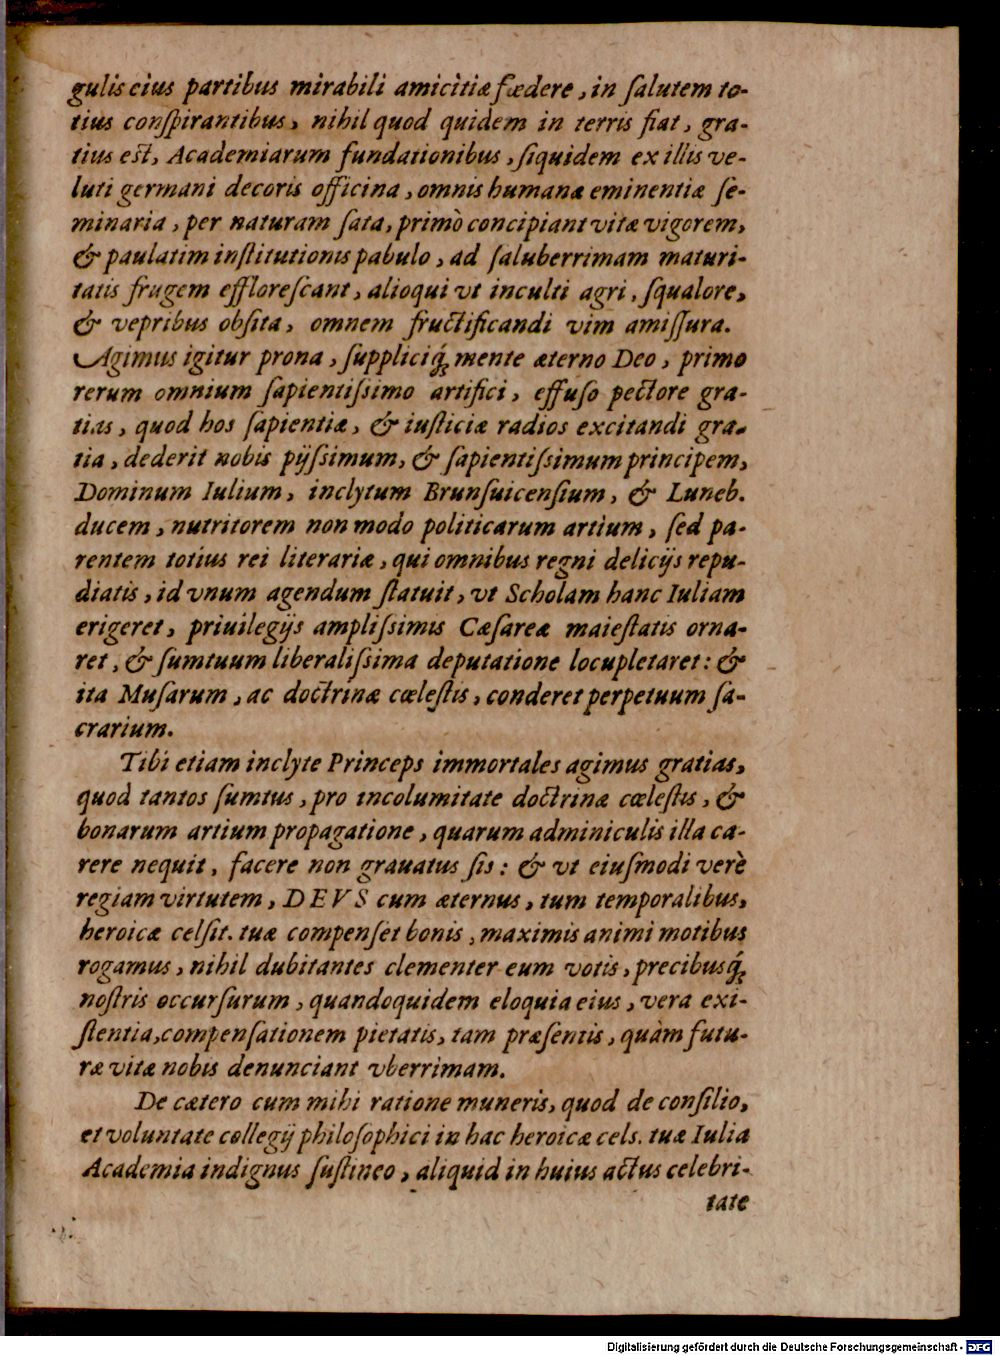 gulis eius partibus mirabili amicitiæ fœdere, in ſalutem to-
tius conſpirantibus, nihil quod quidem in terris fiat, gra-
tius eſt, Academiarum fundationibus, ſiquidem ex illis ve-
luti germani decoris officina, omnis humanæ eminentiæ ſe-
minaria, per naturam ſata, primò concipiant vitæ vigorem,
& paulatim inſtitutionis pabulo, ad ſaluberrimam maturi-
tatis frugem effloreſcant, alioqui vt inculti agri, ſqualore,
& vepribus obſita, omnem fructificandi vim amiſſura.
Agimus igitur prona, ſuppliciq́; mente æterno Deo, primo
rerum omnium ſapientiſsimo artifici, effuſo pectore gra-
tias, quod hos ſapientiæ, & iuſticiæ radios excitandi gra-
tia, dederit nobis pijſsimum, & ſapientiſsimum principem,
Dominum Iulium, inclytum Brunſuicenſium, & Luneb.
ducem, nutritorem non modo politicarum artium, ſed pa-
rentem totius rei literariæ, qui omnibus regni delicijs repu-
diatis, id vnum agendum ſtatuit, vt Scholam hanc Iuliam
erigeret, priuilegijs ampliſsimis Cæſareæ maieſtatis orna-
ret, & ſumtuum liberaliſsima deputatione locupletaret: &
ita Muſarum, ac doctrinæ cœleſtis, conderet perpetuum ſa-
crarium.
Tibi etiam inclyte Princeps immortales agimus gratias,
quod tantos ſumtus, pro incolumitate doctrinæ cœleſtis, &
bonarum artium propagatione, quarum adminiculis illa ca-
rere nequit, facere non grauatus ſis: & vt eiuſmodi verè
regiam virtutem, DEVS cum æternus, tum temporalibus,
heroicæ celſit. tuæ compenſet bonis, maximis animi motibus
rogamus, nihil dubitantes clementer eum votis, precibusq́;
noſtris occurſurum, quandoquidem eloquia eius, vera exi-
ſtentia, compenſationem pietatis, tam præſentis, quàm futu-
ræ vitæ nobis denunciant vberrimam.
De cætero cum mihi ratione muneris, quod de conſilio,
et voluntate collegij philoſophici in hac heroicæ cels. tuæ Iulia
Academia indignus ſuſtineo, aliquid in huius actus celebri-
tate
Digitalisierung gefördert durch die Deutsche Forschungsgemeinschaft - DFG